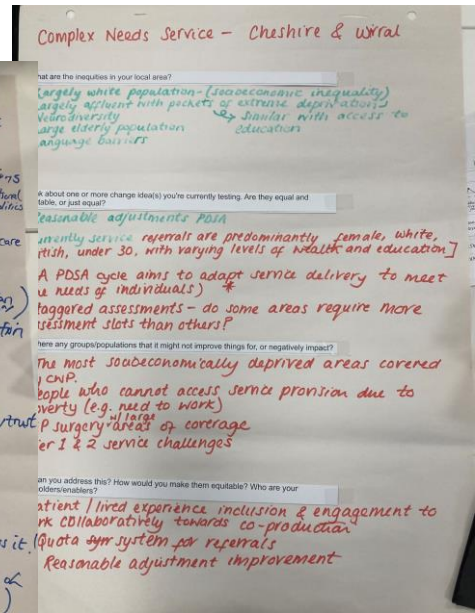 Complex Needs Service - Cheshire & Wirral
hat are the inequities in your local area?
Largely white population - (socioeconomic inequality)
Largely affluent with pockets of extreme deprivation
Neurodiversity
↳ similar with access to
education
Large elderly population
Language barriers
k about one or more change idea(s) you're currently testing. Are they equal and
table, or just equal?
easonable adjustments PDSA
urrently service referrals are predominantly female, white,
itish, under 30, with varying levels of wealth and education]
A PDSA cycle aims to adapt service delivery to meet
e needs of individuals) *
taggered assessments - do some areas require more
ssessment slots than others?
here any groups/populations that it might not improve things for, or negatively impact?
The most socioeconomically deprived areas covered
CNP.
eople who cannot access service provision due to
overty (e.g. need to work)
P surgery w/ large areas of coverage
er 1 & 2 service challenges
an you address this? How would you make them equitable? Who are your
olders/enablers?
atient / lived experience inclusion & engagement to
rk collaboratively towards co-production
Quota system for referrals
Reasonable adjustment improvement
care
trust
s it.